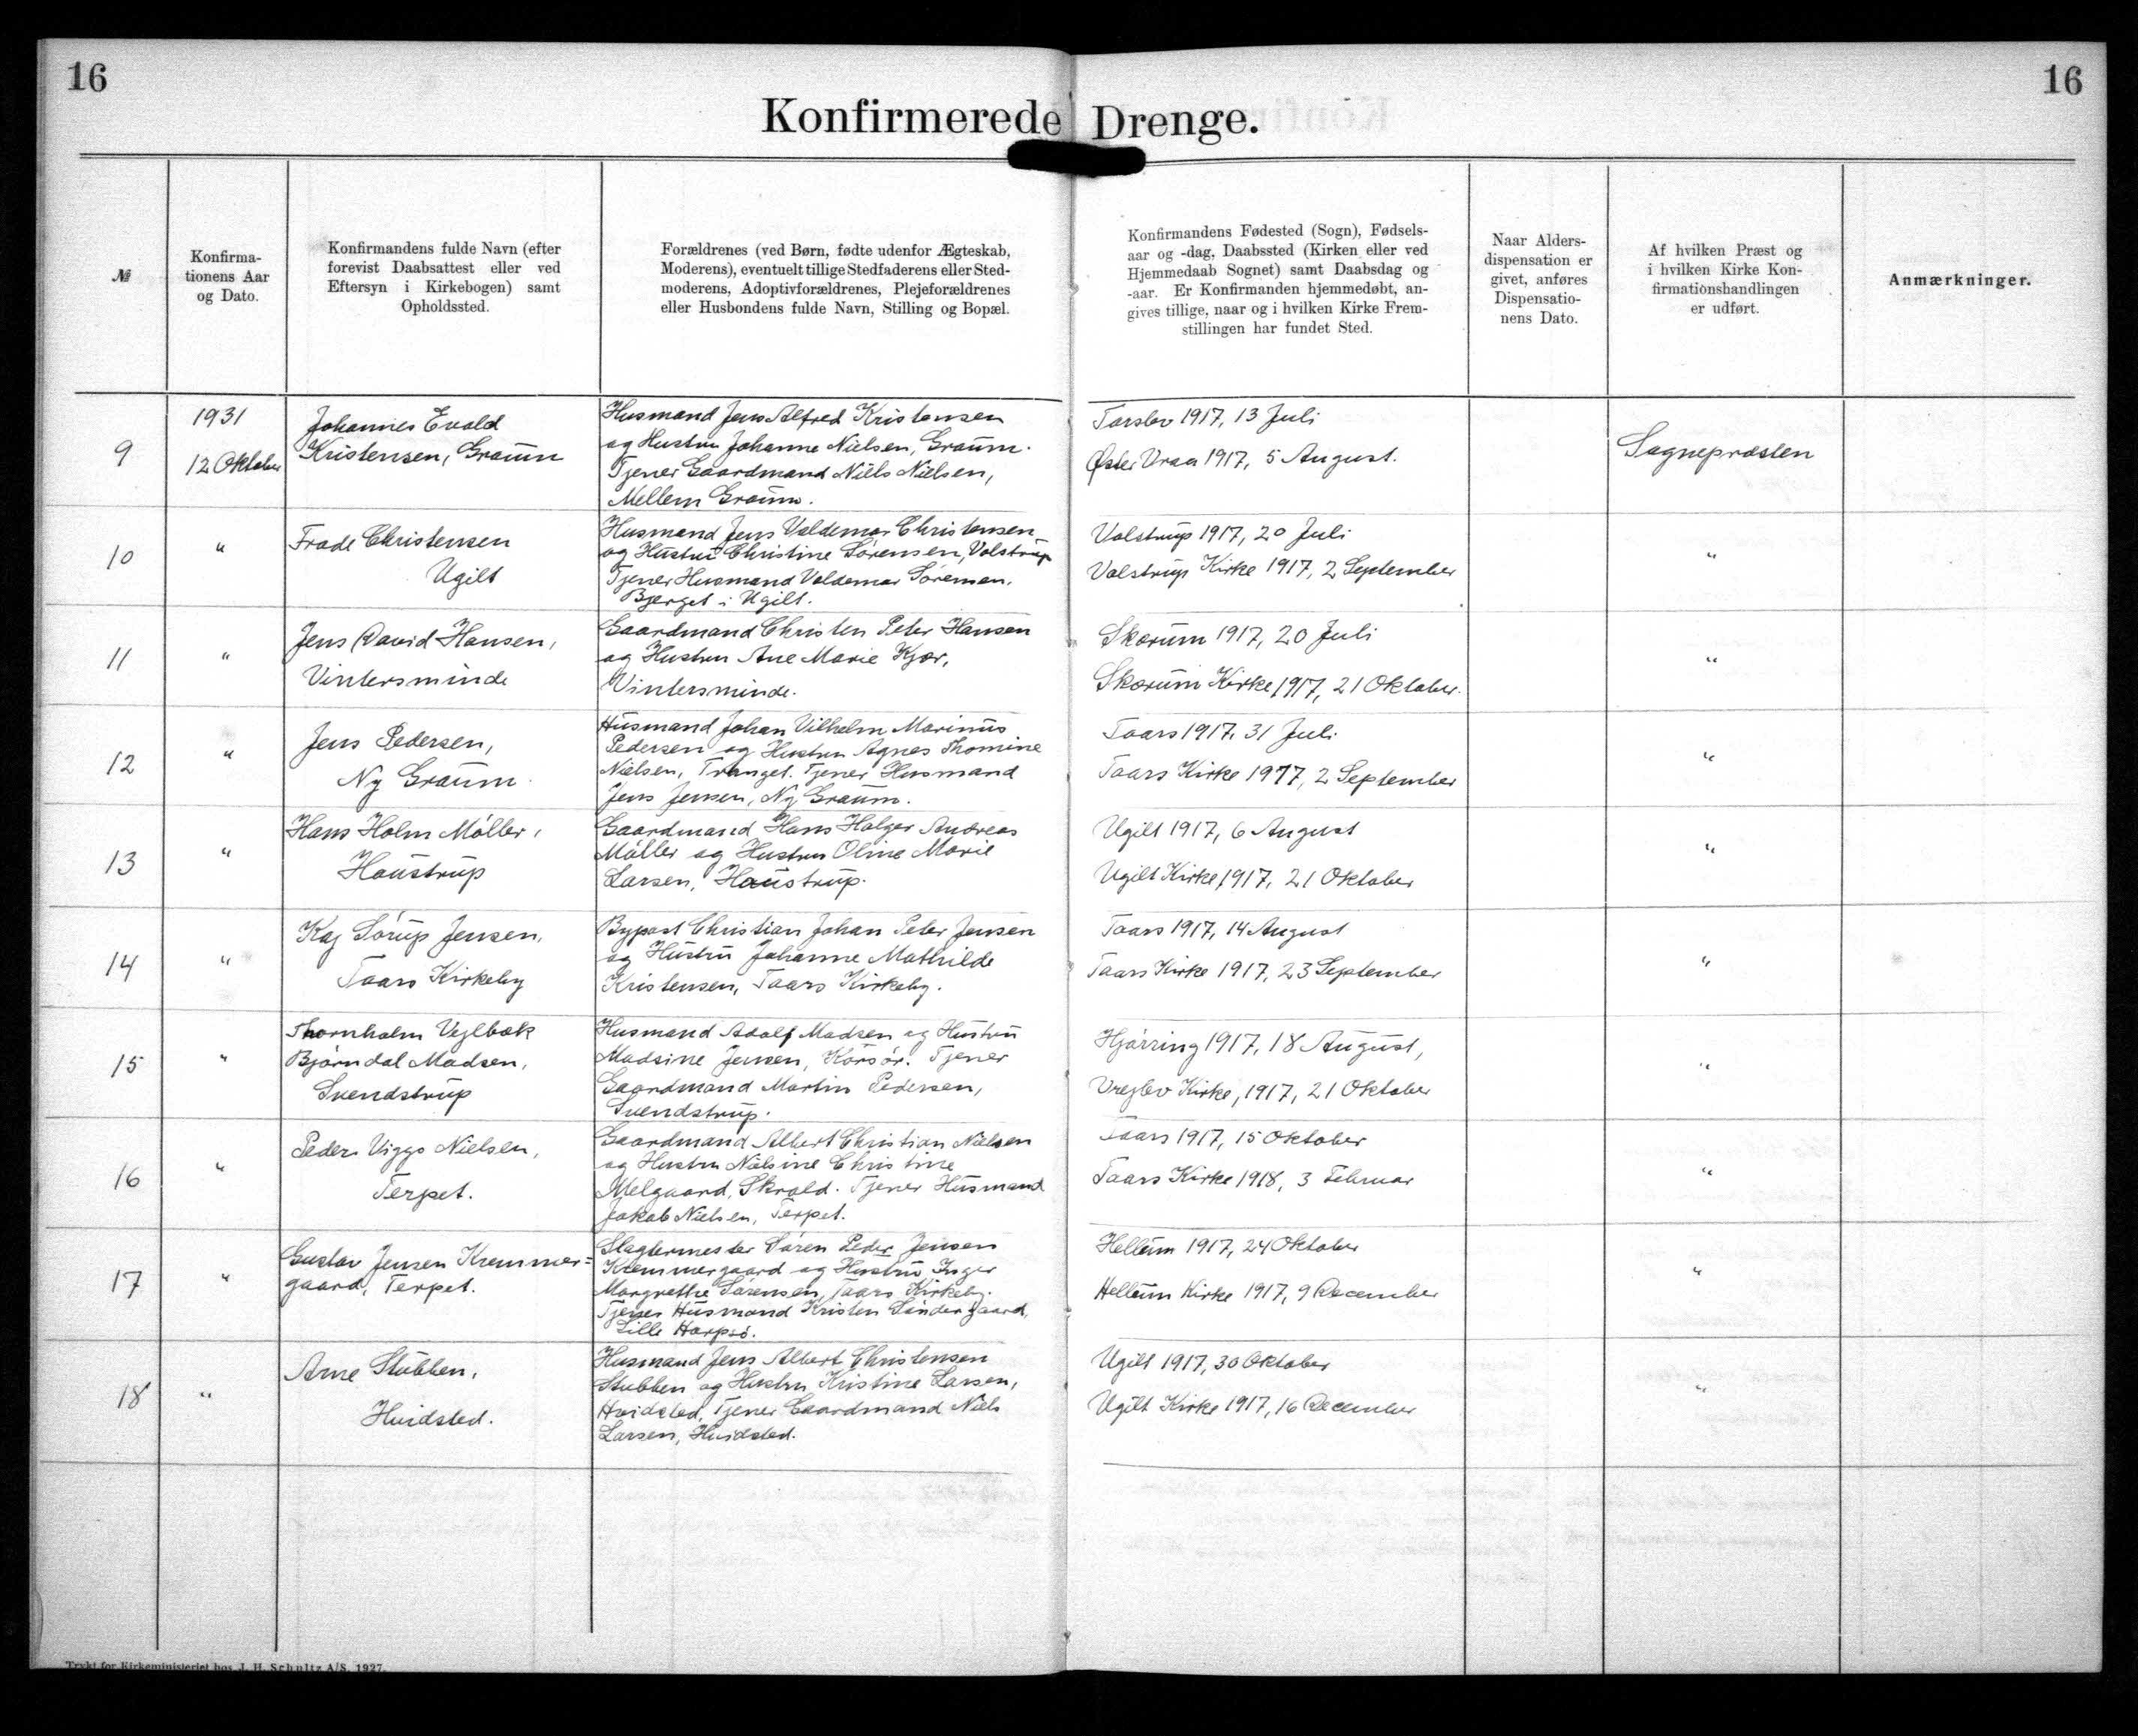 16
16
Konfirmerede Drenge.
№
Konfirma-
tionens Aar
og Dato.
Konfirmandens fulde Navn (efter
forevist Daabsattest eller ved
Eftersyn i Kirkebogen) samt
Opholdssted.
Forældrenes (ved Børn, fødte udenfor Ægteskab,
Moderens), eventuelt tillige Stedfaderens eller Sted-
moderens, Adoptivforældrenes, Plejeforældrenes
eller Husbondens fulde Navn, Stilling og Bopæl.
Konfirmandens Fødested (Sogn), Fødsels-
aar og -dag, Daabssted (Kirken eller ved
Hjemmedaab Sognet) samt Daabsdag og
-aar. Er Konfirmanden hjemmedøbt, an-
gives tillige, naar og i hvilken Kirke Frem-
stillingen har fundet Sted.
Naar Alders-
dispensation er
givet, anføres
Dispensatio-
nens Dato.
Af hvilken Præst og
i hvilken Kirke Kon-
firmationshandlingen
er udført.
Anmærkninger.
9
1931
12 Oktober
Johannes Evald
Kristensen, Graum
Husmand Jens Alfred Kristensen
og Hustru Johanne Nielsen, Graum.
Tjener Gaardmand Niels Nielsen,
Mellem Graum.
Torslev 1917, 13 Juli
Øster Vraa 1917, 5 August.
Sognepræsten
10
"
Frode Christensen
Ugilt
Husmand Jens Valdemar Christensen
og Hustru Christine Sørensen, Volstrup
Tjener Husmand Valdemar Sørensen.
Bjerget i Ugilt.
Volstrup 1917, 20 Juli
Volstrup Kirke 1917, 2 September
"
11
"
Jens David Hansen,
Vintersminde
Gaardmand Christen Peter Hansen
og Hustru Ane Marie Kjær,
Vintersminde.
Skærum 1917, 20 Juli
Skærum Kirke 1917, 21 Oktober.
"
12
"
Jens Pedersen,
Ny Graum.
Husmand Johan Vilhelm Marinus
Pedersen og Hustru Agnes Thomine
Nielsen, Tranget. Tjener Husmand
Jens Jensen, Ny Graum.
Taars 1917, 31 Juli.
Taars Kirke 1917, 2 September
"
13
"
Hans Holm Møller,
Haustrup
Gaardmand Hans Holger Andreas
Møller og Hustru Oline Marie
Larsen, Haustrup.
Ugilt 1917, 6 August
Ugilt Kirke, 1917, 21 Oktober
"
14
"
Kaj Sørup Jensen,
Taars Kirkeby
Bypost Christian Johan Peter Jensen
og Hustru Johanne Mathilde
Kristensen, Taars Kirkeby.
Taars 1917, 14 August
Taars Kirke 1917, 23 September
"
15
"
Thornholm Vejlbæk
Bjørndal Madsen,
Svendstrup
Husmand Adolf Madsen og Hustru
Madsine Jensen, Korsør. Tjener
Gaardmand Martin Pedersen,
Svendstrup.
Hjørring 1917, 18 August,
Vrejlev Kirke, 1917, 21 Oktober
"
16
"
Peder Viggo Nielsen,
Terpet.
Gaardmand Albert Christian Nielsen
og Hustru Nielsine Christine
Melgaard, Skrold. Tjener Husmand
Jakob Nielsen, Terpet.
Taars 1917, 15 Oktober
Taars Kirke 1918, 3 Februar
"
17
"
Gustav Jensen Kremmer=
gaard, Terpet.
Slagtermester Søren Peder Jensen
Kremmergaard og Hustru Inger
Margrethe Sørensen, Taars Kirkeby.
Tjener Husmand Kristen Søndergaard,
Lille Harpsø.
Hellum 1917, 24 Oktober
Hellum Kirke 1917, 9 December
"
18
"
Arne Stubben,
Hvidsted.
Husmand Jens Albert Christensen
Stubben og Hustru Kristine Larsen,
Hvidsted, Tjener Gaardmand Niels
Larsen, Hvidsted.
Ugilt 1917, 30 Oktober
Ugilt Kirke 1917, 16 December
"
Trykt for Kirkeministeriet hos J. H. Schultz A/S. 1927.